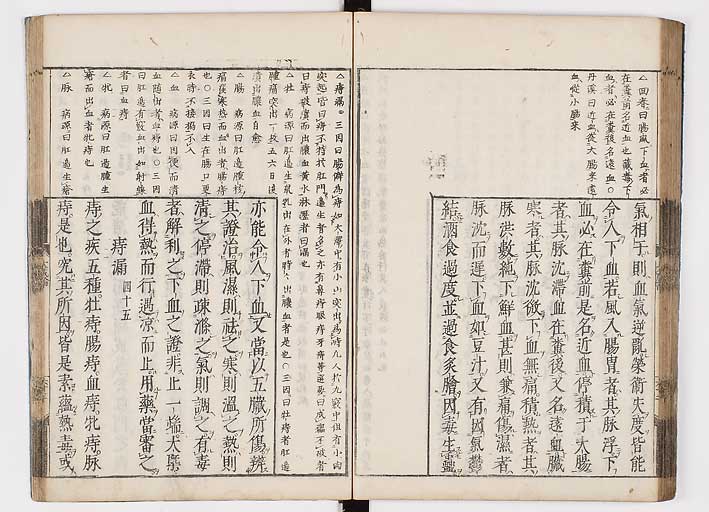 △回春曰腸風下血者必
在糞前名近血也藏毒下
血者必在糞後名遠血○
丹溪曰近血從大腸來遠
血從小腸來
氣相干則血氣逆亂榮衞失度皆能
令人下血若風入腸胃者其脉浮下
血必在糞前是名近血停積于大腸
者其脉沈滯血在糞後又名遠血臟
寒者其脉沈微下血無痛積熱者其
脉洪數純下鮮血甚則兼痛傷濕者
脉沈而遲下血如豆汁又有因氣欝
結酒食過度並過食炙膾因毒生蟲
△痔漏○三因曰腸僻為痔如大澤中有小山突出為峙凡人於九竅中但有小肉
突起皆曰痔不特於肛門邊生者多之亦有鼻痔眼痔牙痔等
曰痔破潰而出膿血黃水淋瀝者曰漏也
△牡 病源曰肛邊生鼠乳出在外者時々出膿血者是也○三因曰牡痔者肛邊
腫痛突出一枚五六日後
潰出膿血自愈
△腸 病源曰肛邊腫核
痛發寒熱而血出者腸痔
也○三因曰生在腸口更
衣時不入
△血 病源曰因便而清
血隨出者血痔也○三因
曰肛邊有竅血出如射線
者曰血痔
△牝 病源曰肛邊腫生
瘡而出血者牝痔也
△脉 病源曰肛邊生瘡
亦能令人下血又當以五臟所傷辨
其證治風濕則祛之寒則溫之熱則
清之停滯則疎滌之氣則調之有毒
者解利之下血之證非止一端大率
血得熱而行遇涼而止用藥當審之
痔漏 四十五
痔之疾五種牡痔腸痔血痔牝痔脉
痔是也究其所因皆是素蘊熱毒或